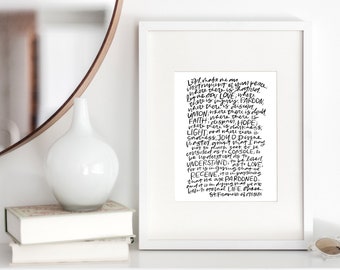 Lord make me an
instrument of your peace,
where there is hatred
let me sow LOVE, where
there is injury, PARDON,
UNION, where there is doubt
FAITH, despair, HOPE,
where there is darkness,
LIGHT, and where there is
sadness, JOY. O Divine
master grant that I may
not so much seek to be
consoled as to CONSOLE, to
be understood as to
UNDERSTAND, to be loved
as to LOVE,
for it is in giving that we
RECEIVE, it is in pardoning
that we are PARDONED,
and it is in dying that we are
born to eternal LIFE
St. Francis of Assisi